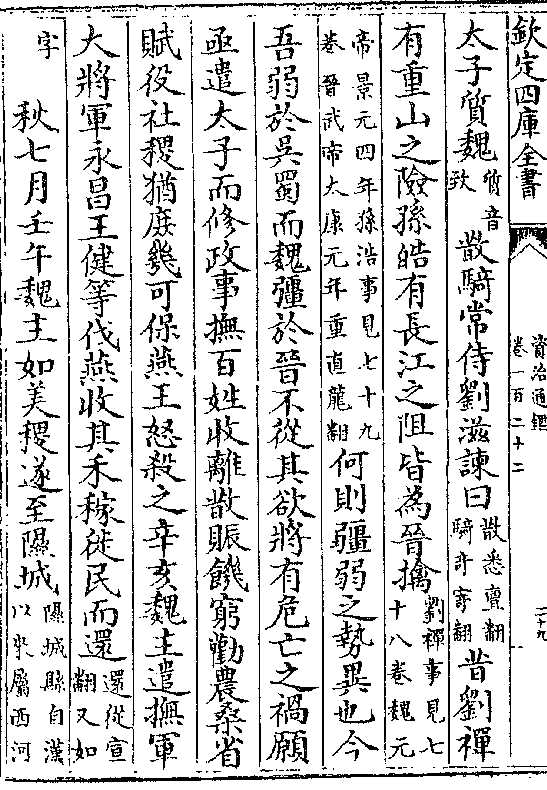 欽定四庫全書 資治通鑑 卷一百二十二 二十九
太子質魏質音致散騎常侍劉滋諫曰散悉亶翻騎奇寄翻昔劉禪
有重山之險孫皓有長江之阻皆為晉擒劉禪事見七十八卷魏元
帝景元四年孫浩事見七十九卷晉武帝大康元年重直龍翻何則疆弱之勢異也今
吾弱於吳蜀而魏彊於晉不從其欲將有危亡之禍願
亟遣太子而修政事撫百姓收離散賑饑窮勸農桑省
賦役社稷猶庶幾可保燕王怒殺之辛亥魏主遣撫軍
大將軍永昌王健等伐燕收其禾稼徙民而還還從宣翻又如
字秋七月壬午魏主如美稷遂至隰城隰城縣自漢以來屬西河